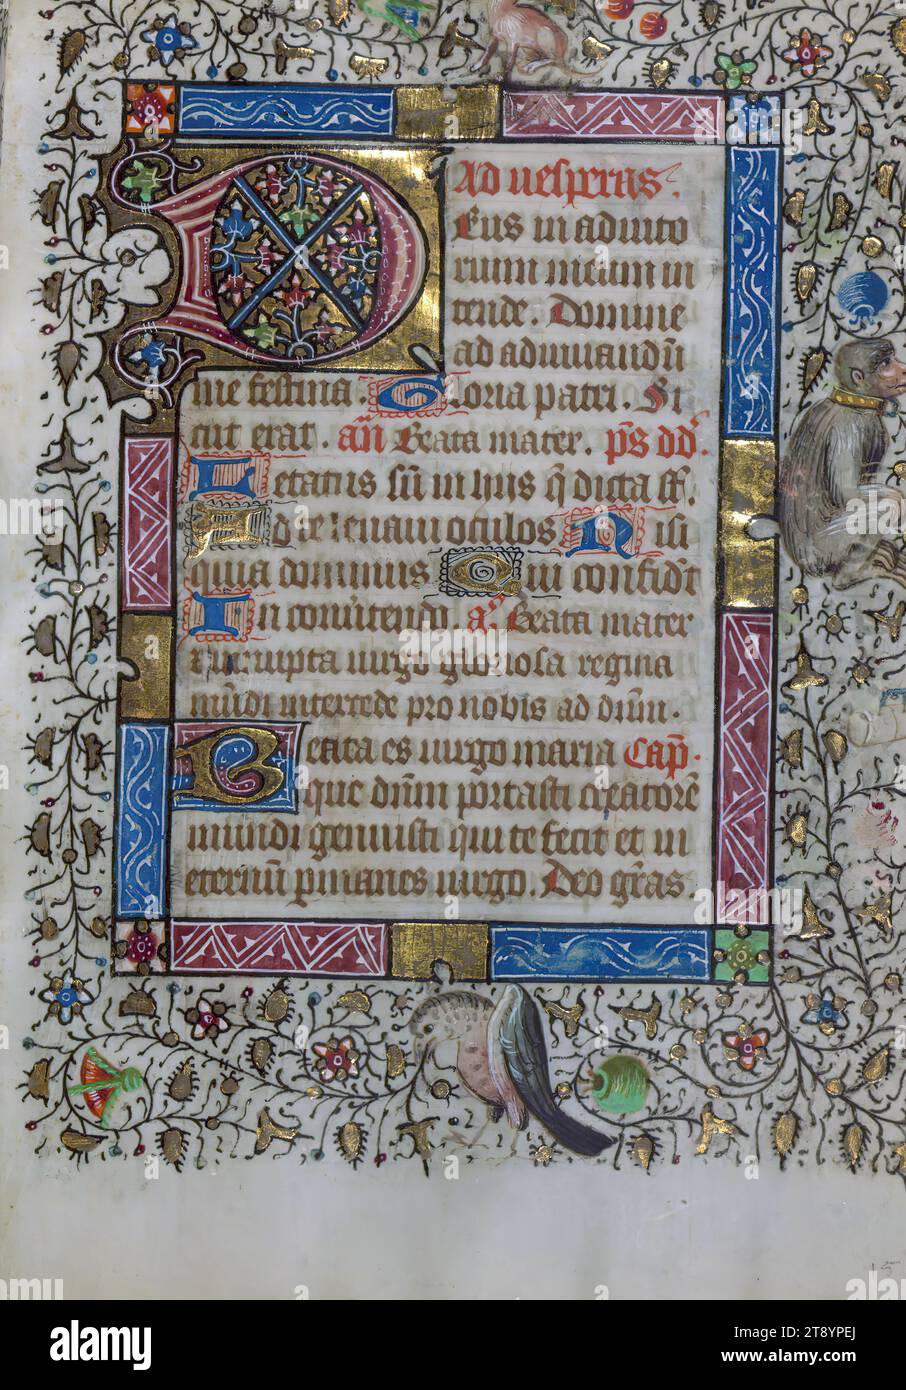 Ad vesperas.
Deus in adiuto
rium meum in
tende. Domine
ad adiuuandū
me festina. Gloria patri. Si
cut erat. añ Beata mater. ps dd.
Letatus sū in hiis q̄ dicta sū.
Ad te leuaui oculos Nisi
quia dominus Qui confidt̄
In conu̾tendo. a. Beata mater
et innupta uirgo gloriosa regina
mūdi intercede pro nobis ad dūm.
Beata es uirgo maria Cap.
que dūm portasti creatorē
mundi genuisti qui te fecit et in
eternū pmanes uirgo. Deo grās
15
alamy
Image ID: 2T8YPEJ
www.alamy.com